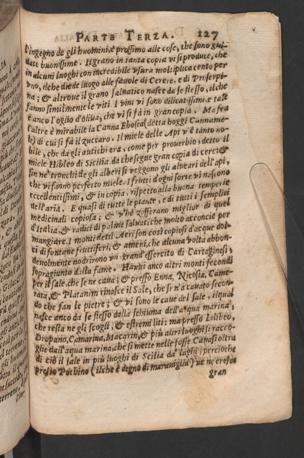 PARTE TERZA. 127
l'ingegno de gli huomini è prossimo alle cose, che sono giu
dicate buonissime. Il grano in tanta copia vi si produce, che
in alcuni luoghi con incredibile vsura moltiplica cento per
vno, ilche diede luogo alle fauole di Cerere, e di Proserpi
na; & altroue il grano saluatico nasce da se stesso, ilche
fanno similmente le viti. I vini vi sono delicatissimi, e
anco l'oglio d'oliua, che vi si fà in gran copia. Ma fra
l'altre è mirabile la Canna
di cui si fà il zuccaro. Il miele delle Api v'è tanto no
bile, che da gli antichi era, come per prouerbio, detto il
miele Hibleo di Sicilia, da che segue gran copia di cera; &
ne' tronchi de gli alberi si veggono gli alueari dell'api,
che vi fanno perfetto miele. I frutti d'ogni sorte vi nascono
eccellentissimi, & in copia, rispetto alla buona temperie
dell'aria. E quasi di tutte le piante, e di tutti i semplici
medicinali copiosa; & vn Zafferano meglio di quel
d'Italia, & radici di palme saluatiche molto acconcie per
mangiare. I monti detti Aerei son così copiosi d'acque dol
ci di fontane fruttiferi, & ameni, che alcuna volta abbon
deuolmente nodrirono vn grand'essercito di Cartaginesi,
sopragiunto dalla fame. Hauui anco altri monti fecondi
per il sale, che se ne caua; & presso Enna, Nicosia, Came
rata, & Platanim rinasce il Sale, che si n'è cauato secon
do che fan le pietre; & vi sono le caue del sale, ilqual
nasce anco da se stesso dalla schiuma dell'acqua marina,
che resta ne gli scogli, & estremi liti: ma presso Lilibeo,
Drepano, Camarina, Macarin, & più altri luoghi si racco
glie dall'acqua marina, che si mette nelle fosse.
di ciò il sale in più luoghi di Sicilia da' laghi, percioche
presso Pachino (ilche è degno di marauiglia)
gran